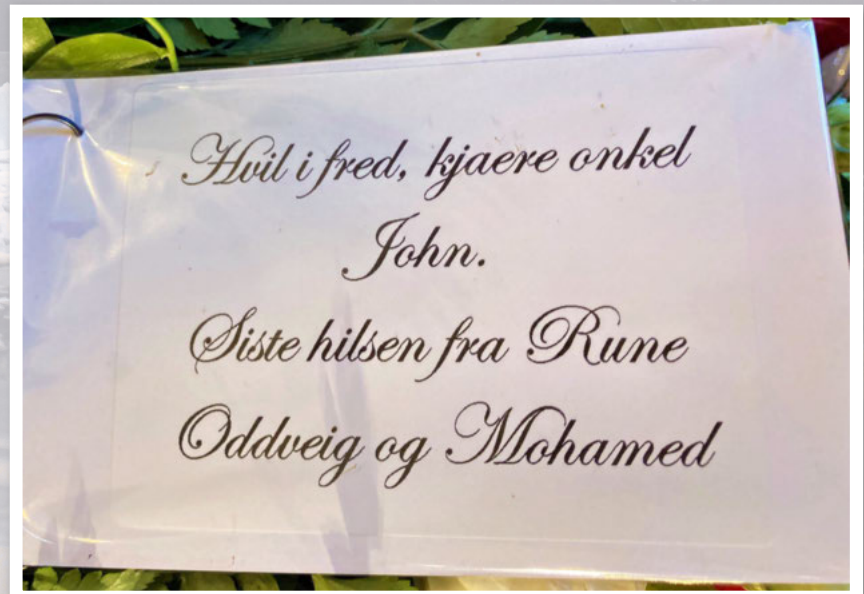 Hvil i fred, kjaere onkel
John.
Siste hilsen fra Rune
Oddveig og Mohamed